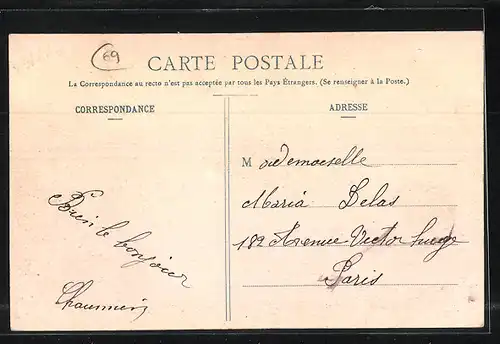 69
CARTE POSTALE
La Correspondance au recto n'est pas acceptée par tous les Pays Étrangers. (Se renseigner à la Poste.)
CORRESPONDANCE
ADRESSE
Mademoiselle
Maria Delas
182 Avenue Victor Hugo
Paris
bonjour